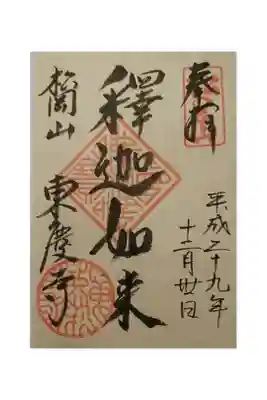 奉拝
平成二十九年
十二月廿日
釋迦如来
松岡山
東慶寺